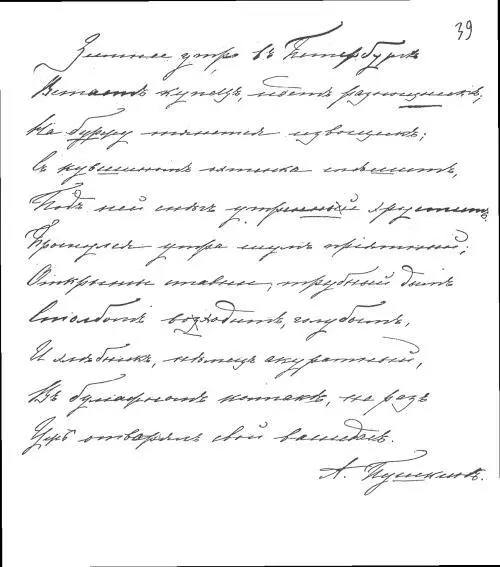 39
Зимнее утро въ Петербургѣ
Встаетъ купецъ, идетъ разнощикъ;
На биржу тянется извощикъ;
Съ кувшиномъ охтинка спѣшитъ,
Подъ ней снѣгъ утренній хруститъ
Проснулся утра шумъ пріятный;
Открыты ставни, трубный дымъ
Столбомъ восходитъ, голубымъ,
И хлѣбникъ, нѣмецъ акуратный,
Въ бумажномъ колпакѣ, не разъ
Ужъ отворялъ свой васисдасъ.
А. Пушкинъ.